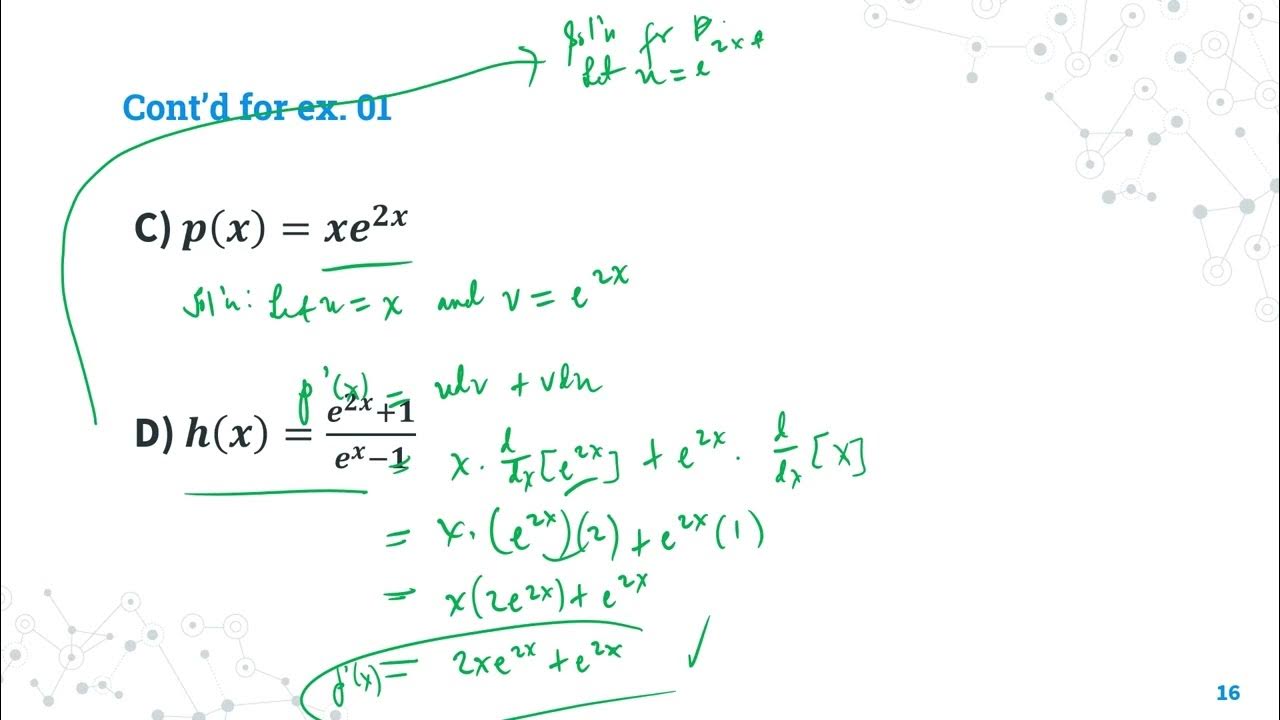 Sol'n for D
Let u = e^{2x} +
Cont'd for ex. 01
C) p(x) = xe^{2x}
Sol'n: Let u = x and v = e^{2x}
p'(x) = udv + vdu
D) h(x) = \frac{e^{2x}+1}{e^x-1}
= x · \frac{d}{dx}[e^{2x}] + e^{2x} · \frac{d}{dx}[x]
= x · (e^{2x})(2) + e^{2x}(1)
= x(2e^{2x}) + e^{2x}
p'(x) = 2xe^{2x} + e^{2x} ✓
16